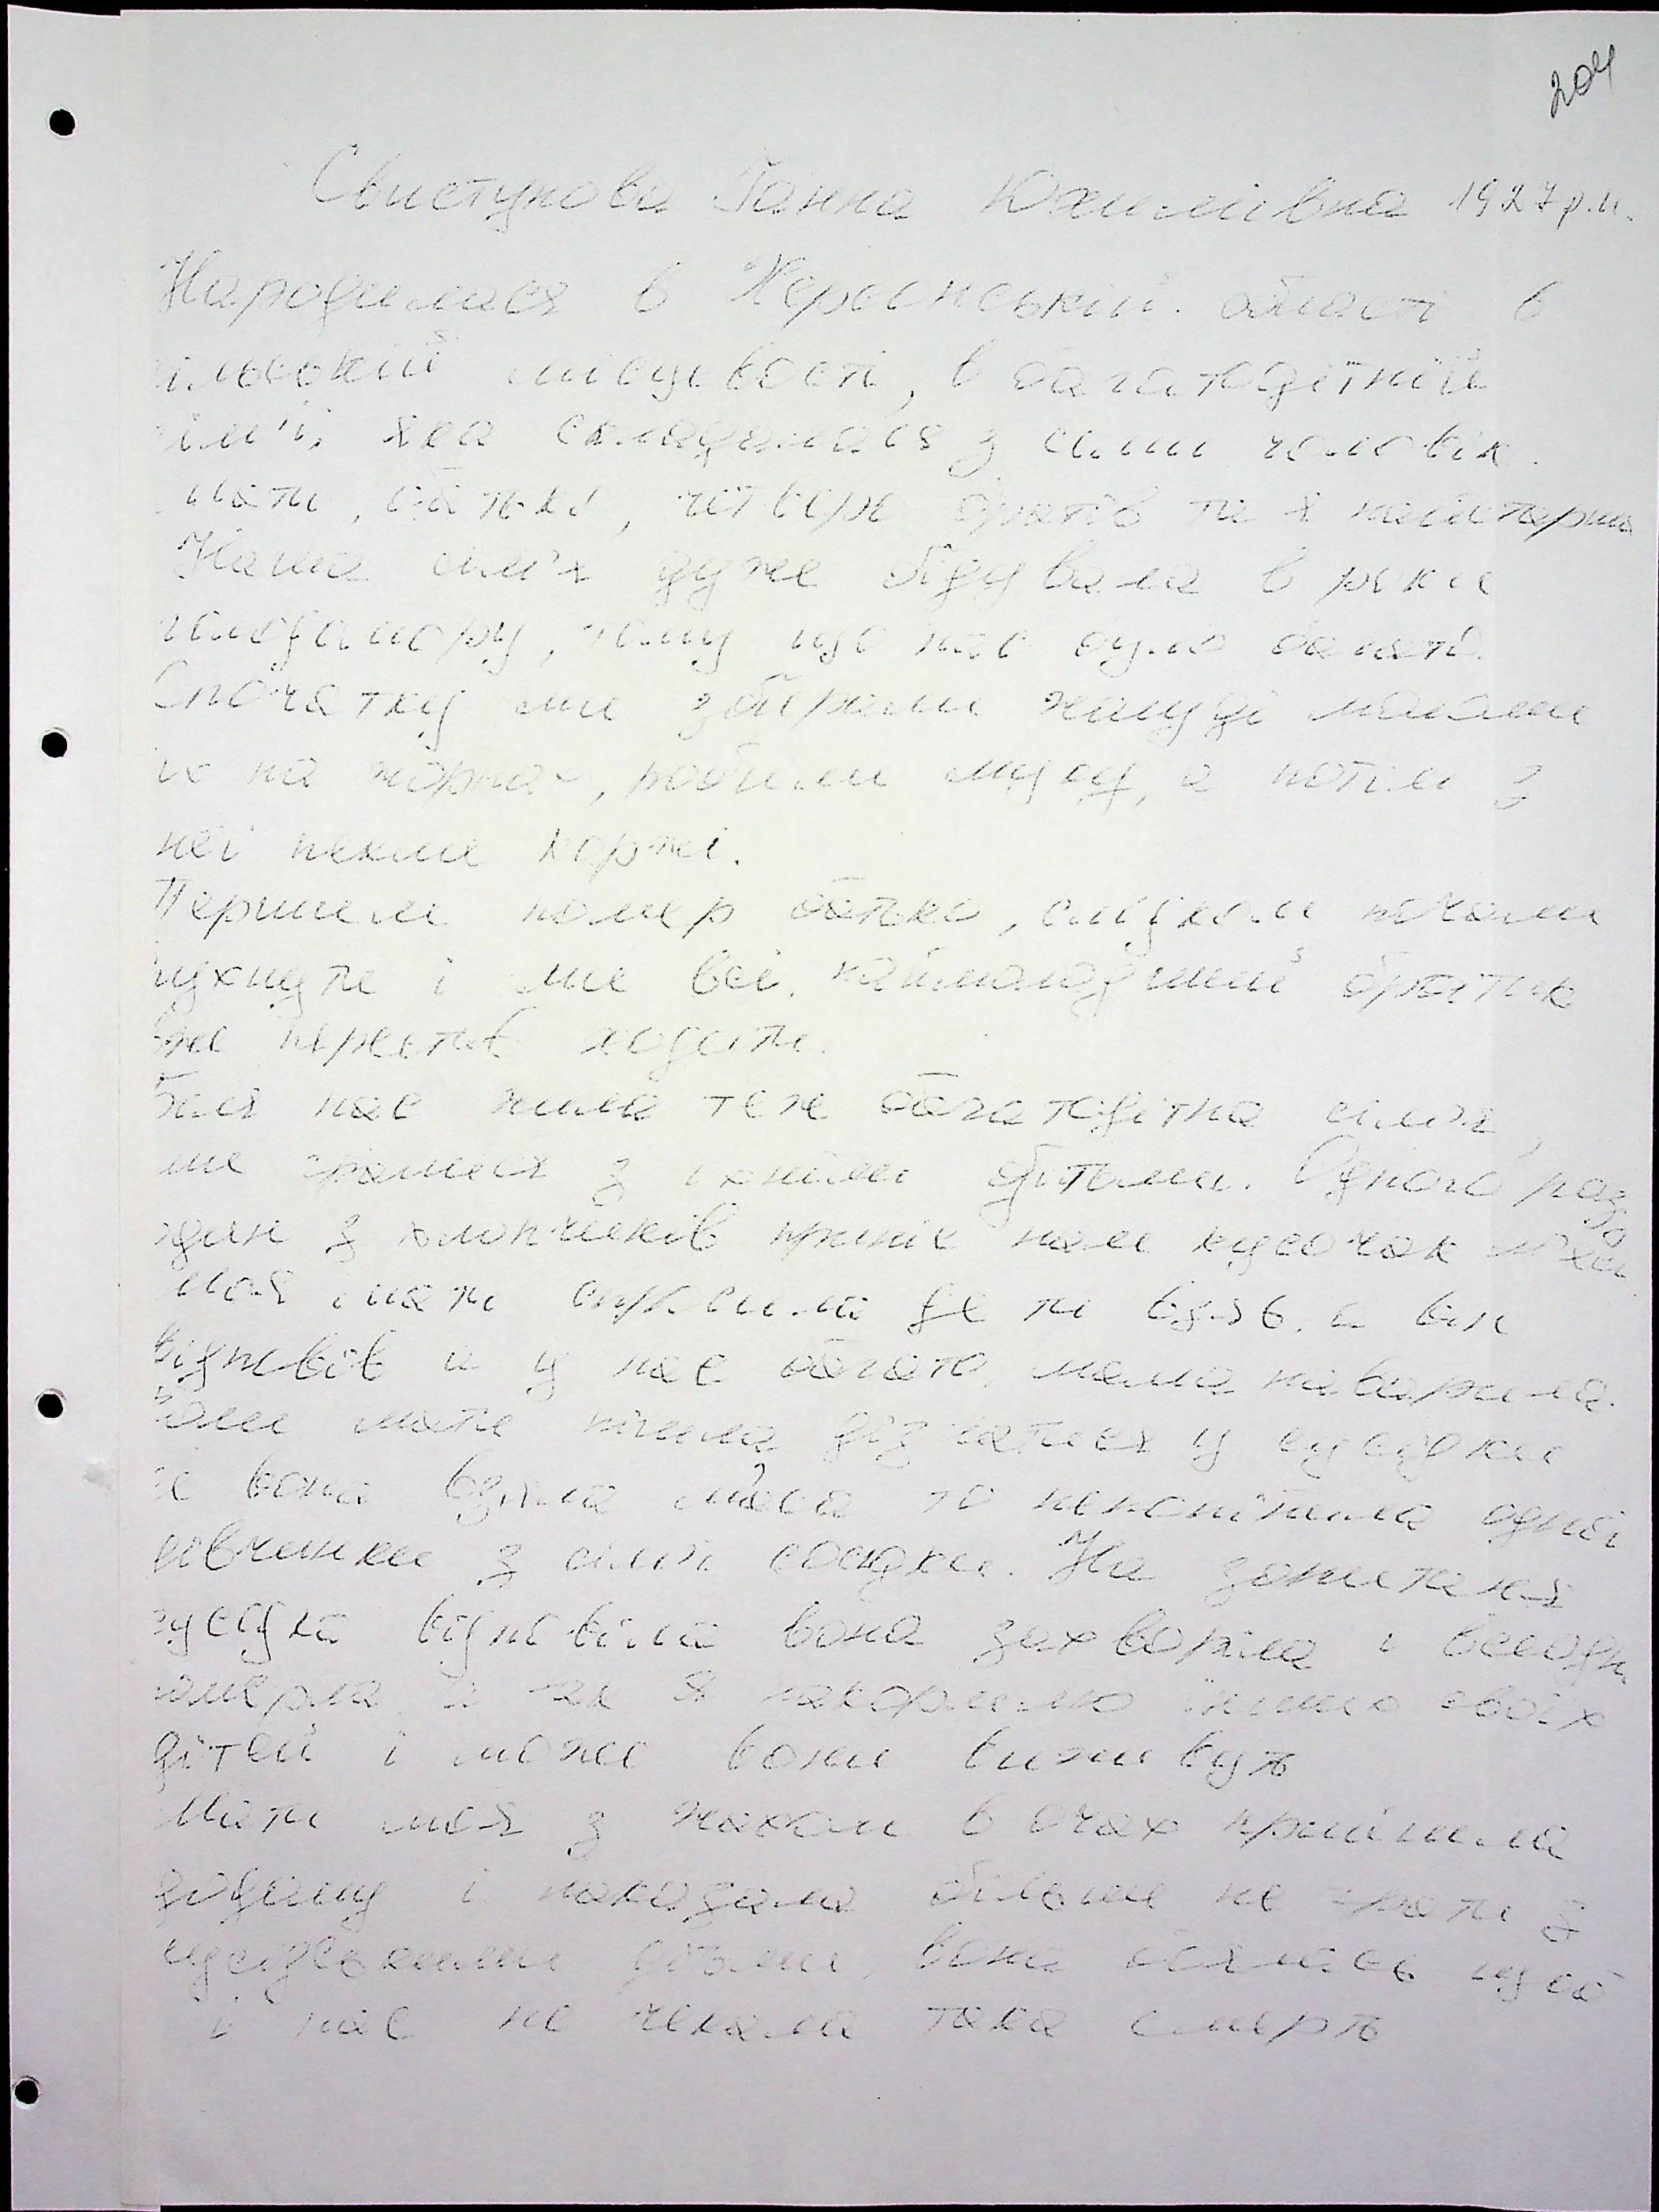 204
Свистунова Ганна Юхимівна 1927 р.н.
Народилася в Херсонській області в
ільській місцевості, в багатодітній
ім'ї, яка складалася з семи чоловік.
мати, батько, четверо братів та я найстарша
Наша сім'я дуже бідувала в роки
голодомору, тому що нас було багато.
Спочатку ми збирали жолуді мололи
їх на жорнах, робили муку, а потім з
неї пекли коржі.
Першим помер батько, слідком почали
пухнути і ми всі, наймолодший братик
вже перестав ходити.
Біля нас жила теж багатодітна сім'я,
ми грались з їхніми дітьми. Одного разу
один з хлопчиків приніс нам кусочок м'яса
моя мати спросила де ти взяв, а він
відповів а у нас багато, мама наварила.
Коли мати пішла дізнатися у сусідки
де вона взяла м'яса то непомітила одної
дівчинки з сім'ї сосідки. На запитання
сусідка відповіла вона захворіла і всеодно
померла а так я накормлю інших своїх
дітей і може вони виживуть
Мати моя з жахом в очах прийшла
додому і наказала більше не грати з
сусідськими дітьми, вона боялась щоб
і нас не чекала така смерть